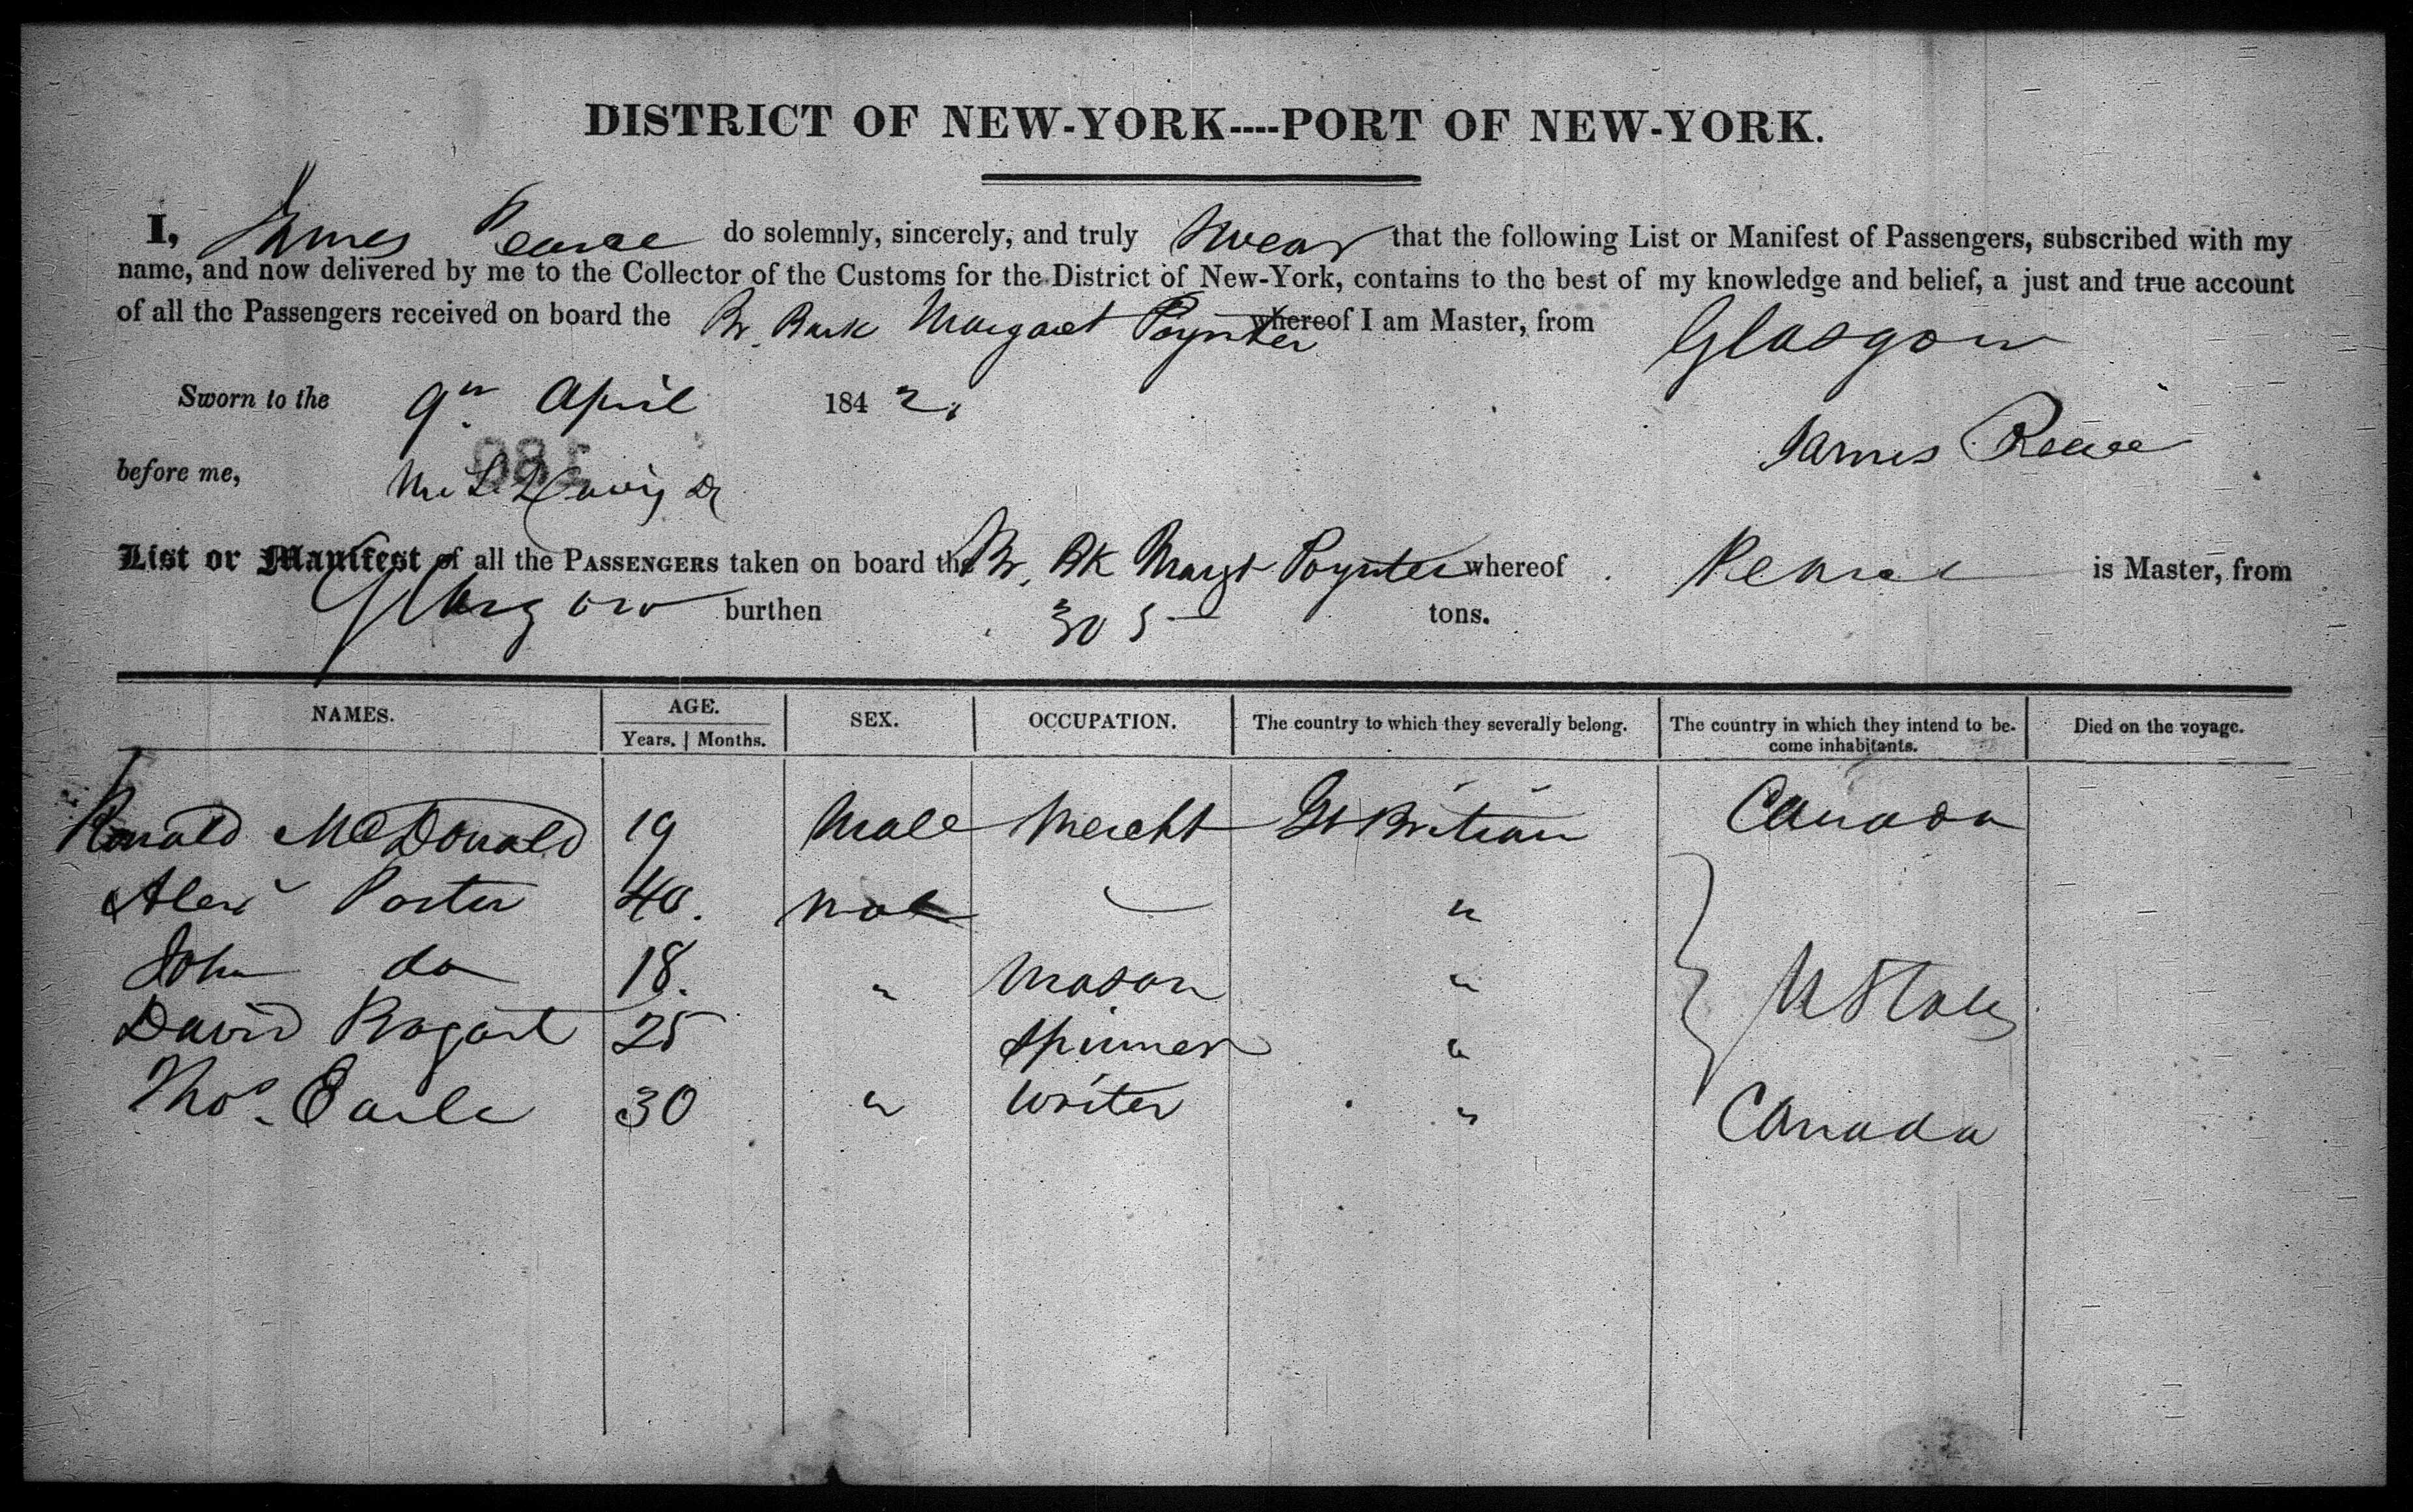 DISTRICT OF NEW-YORK----PORT OF NEW-YORK.
I, James Pearce do solemnly, sincerely, and truly swear that the following List or Manifest of Passengers, subscribed with my
name, and now delivered by me to the Collector of the Customs for the District of New-York, contains to the best of my knowledge and belief, a just and true account
of all the Passengers received on board the Br. Bark Margaret Poynter whereof I am Master, from Glasgow
Sworn to the 9th April 1842.
James Pearce
before me,
List or Manifest of all the PASSENGERS taken on board the Br. Bk Margt Poynter whereof Pearce is Master, from
Glasgow burthen 305 tons.
NAMES. AGE. SEX. OCCUPATION. The country to which they severally belong. The country in which they intend to be- Died on the voyage.
Years. Months. come inhabitants.
Ronald McDonald 19 Male Mercht Gt Britian Canada
Alexr Porter 40. Male "
John do 18. " Mason " U States
David Bogart 25 Spinner "
Thos. Earle 30 " Writer " Canada